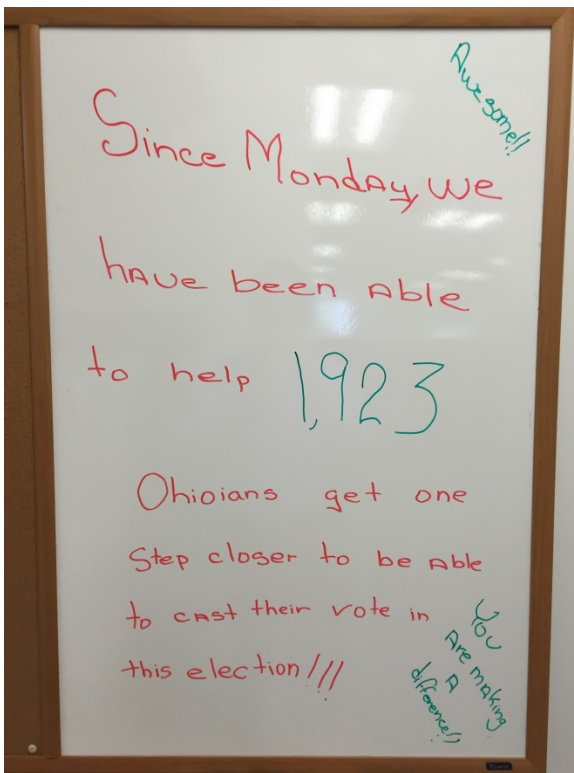 Awesome!!
Since Monday, we
have been able
to help 1,923
Ohioians get one
step closer to be able
to cast their vote in
this election!!!
You
are making
a
difference!!